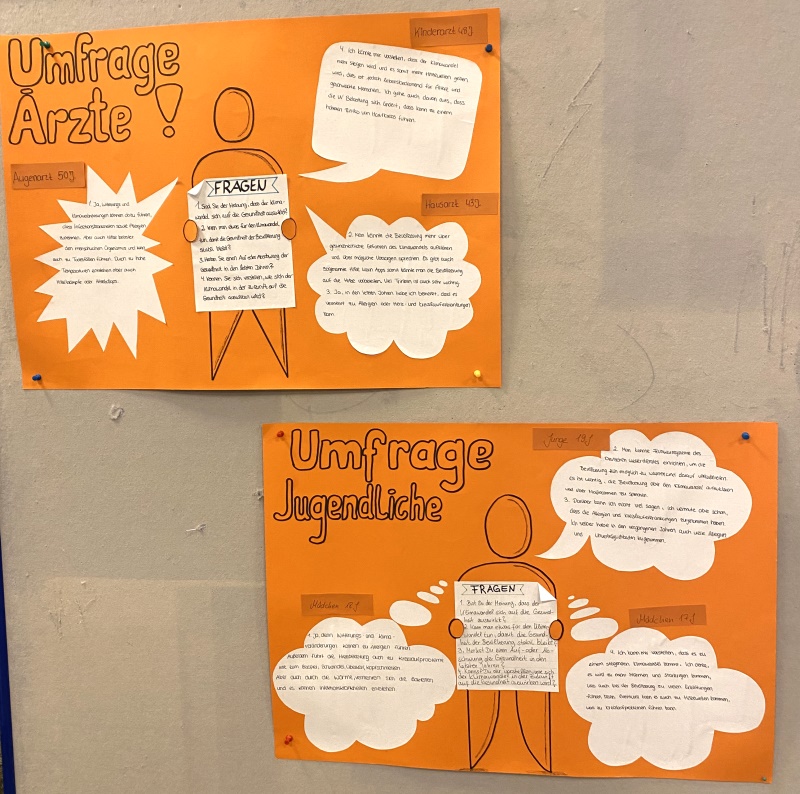 Umfrage
Ärzte !
Kinderarzt 48J.
4. Ich könnte mir vorstellen, dass der Klimawandel
mehr steigen wird und es somit mehr Hitzewellen geben
wird, dies ist jedoch lebensbedrohend für Ältere und
geschwächte Menschen. Ich gehe auch davon aus, dass
die UV Belastung sich ändert, dass kann zu einem
höheren Risiko von Hautkrebs führen.
Augenarzt 50J.
1. Ja, Witterungs und
Klimaveränderungen können dazu führen,
dass Infektionskrankheiten sowie Allergien
zunehmen. Aber auch Hitze belastet
den menschlichen Organismus und kann
auch zu Todesfällen führen. Durch zu hohe
Temperaturen entstehen aber auch
Hitzekrämpfe oder Hitzekollaps.
FRAGEN
1. Sind Sie der Meinung, dass der Klima-
wandel sich auf die Gesundheit auswirkt?
2. Kann man etwas für den Klimawandel
tun, damit die Gesundheit der Bevölkerung
stabil bleibt?
3. Merken Sie einen Auf- oder Abschwung der
Gesundheit in den letzten Jahren?
4. Können Sie sich vorstellen, wie sich der
Klimawandel in der Zukunft auf die
Gesundheit auswirken wird?
Hausarzt 43J.
2. Man könnte die Bevölkerung mehr über
gesundheitliche Gefahren des Klimawandels aufklären
und über mögliche Vorsorgen sprechen. Es gibt auch
sogenannte Hitze Warn Apps somit könnte man die Bevölkerung
auf die Hitze vorbereiten. Viel Trinken ist auch sehr wichtig.
3. Ja, in den letzten Jahren habe ich bemerkt, dass es
vermehrt zu Allergien oder Herz- und Kreislauferkrankungen
kam.
Umfrage
Jugendliche
Junge 19J
2. Man könnte Hitzewarnsysteme des
Deutschen Wetterdienstes einrichten, um die
Bevölkerung früh möglich zu warnen und darauf vorzubereiten.
Es ist wichtig, die Bevölkerung über den Klimawandel aufzuklären
und über Maßnahmen zu sprechen.
3. Darüber kann ich nicht viel sagen, ich vermute aber schon,
dass die Allergien und Kreislauferkrankungen zugenommen haben.
Ich selber habe in den vergangenen Jahren auch mehr Allergien
und Unverträglichkeiten bekommen.
Mädchen
1. Ja, denn Witterungs und Klima-
veränderungen können die Allergien fördern.
Außerdem führt die Hitzebelastung auch zu Kreislaufproblemen
wie zum Beispiel Schwindel, Übelkeit, Kopfschmerzen.
Aber auch durch die Wärme, vermehren sich die Bakterien
und es können Infektionskrankheiten entstehen.
FRAGEN
1. Bist Du der Meinung, dass der
Klimawandel sich auf die Gesund-
heit auswirkt?
2. Kann man etwas für den Klima-
wandel tun, damit die Gesund-
heit der Bevölkerung stabil bleibt?
3. Merkst Du einen Auf- oder Ab-
schwung der Gesundheit in den
letzten Jahren?
4. Kannst Du dir vorstellen, wie sich
der Klimawandel in der Zukunft
auf die Gesundheit auswirken wird?
Mädchen 17J.
4. Ich kann mir vorstellen, dass es zu
einem steigenden Klimawandel kommt. Ich denke,
es wird zu mehr Stürmen und Starkregen kommen,
was auch bei der Bevölkerung zu vielen Erkältungen
führen kann. Eventuell kann es auch zu Hitzewellen kommen,
was zu Kreislaufproblemen führen kann.